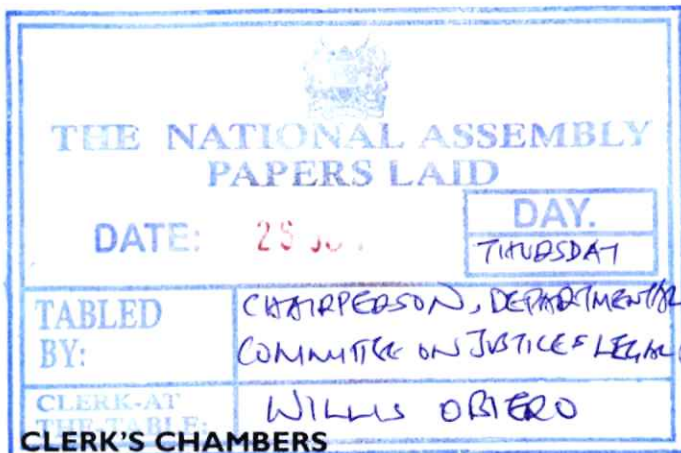 THE NATIONAL ASSEMBLY
PAPERS LAID
DATE:
DAY.
THURSDAY
TABLED BY:
CHAIRPERSON, DEPARTMENTAL
COMMITTEE ON JUSTICE & LEGAL
CLERK-AT THE-TABLE:
WILLIS OBIERO
CLERK'S CHAMBERS